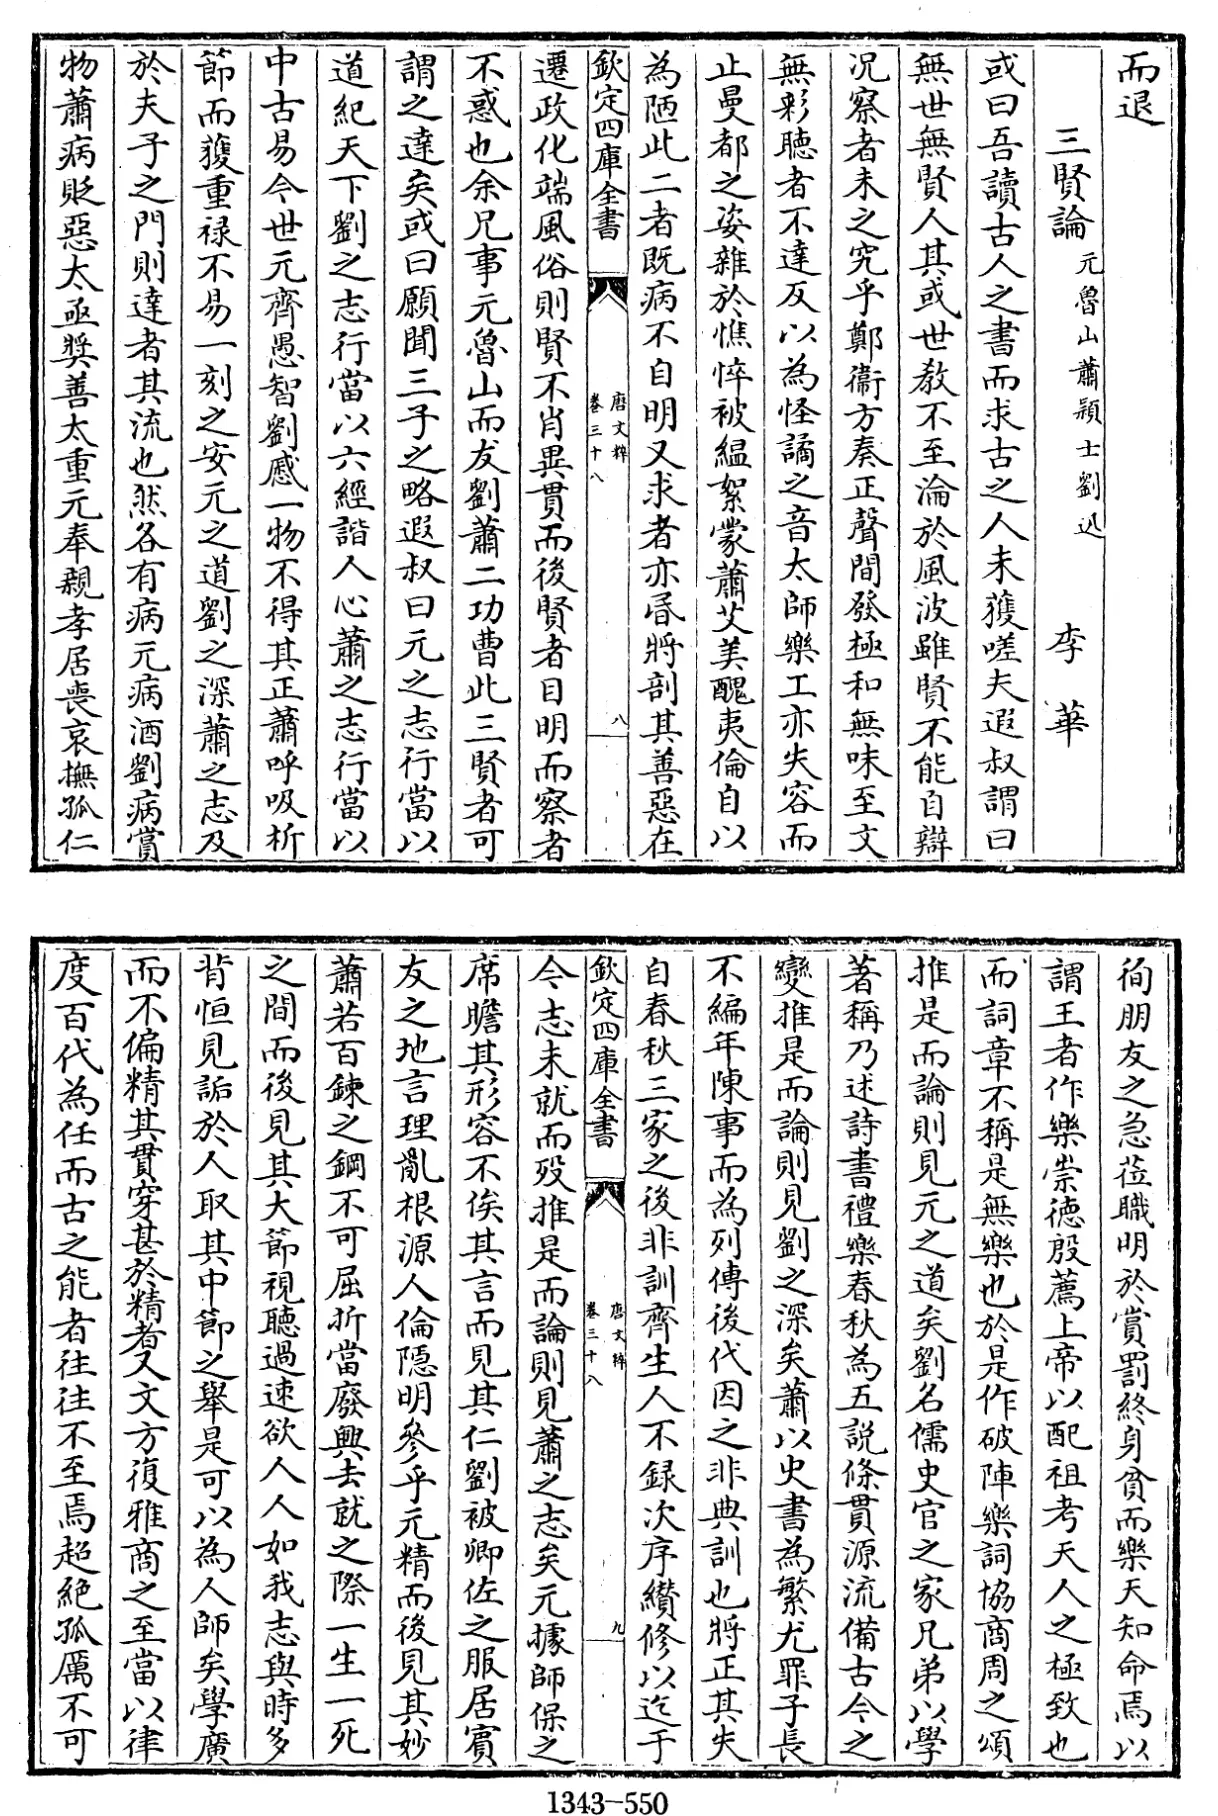 而退
三賢論 元魯山蕭頴士劉迅 李華
或曰吾讀古人之書而求古之人未獲嗟夫遐叔謂曰
無世無賢人其或世教不至淪於風波雖賢不能自辯
况察者未之究乎鄭衞方奏正聲間發極和無味至文
無彩聽者不達反以為怪譎之音太師樂工亦失容而
止曼都之姿雜於憔悴被緼絮蒙蕭艾美醜夷倫自以
為陋此二者既病不自明又求者亦昬將剖其善惡在
欽定四庫全書
唐文粹
卷三十八
八
遷政化端風俗則賢不肖異貫而後賢者自明而察者
不惑也余兄事元魯山而友劉蕭二功曹此三賢者可
謂之達矣或曰願聞三子之略遐叔曰元之志行當以
道紀天下劉之志行當以六經諧人心蕭之志行當以
中古易今世元齊愚智劉感一物不得其正蕭呼吸析
節而獲重禄不易一刻之安元之道劉之深蕭之志及
於夫子之門則達者其流也然各有病元病酒劉病賞
物蕭病貶惡太亟奬善太重元奉親孝居喪哀撫孤仁
徇朋友之急莅職明於賞罰終身貧而樂天知命焉以
謂王者作樂崇德殷薦上帝以配祖考天人之極致也
而詞章不稱是無樂也於是作破陣樂詞協商周之頌
推是而論則見元之道矣劉名儒史官之家兄弟以學
著稱乃述詩書禮樂春秋為五說條貫源流備古今之
變推是而論則見劉之深矣蕭以史書為繁尤罪子長
不編年陳事而為列傳後代因之非典訓也將正其失
自春秋三家之後非訓齊生人不録次序纉修以迄于
欽定四庫全書
唐文粹
卷三十八
九
今志未就而殁推是而論則見蕭之志矣元據師保之
席瞻其形容不俟其言而見其仁劉被卿佐之服居賓
友之地言理亂根源人倫隱明參乎元精而後見其妙
蕭若百錬之鋼不可屈折當廢興去就之際一生一死
之間而後見其大節視聽過速欲人人如我志與時多
背恒見詬於人取其中節之舉是可以為人師矣學廣
而不偏精其貫穿甚於精者又文方復雅商之至當以律
度百代為任而古之能者往往不至焉超絶孤厲不可
1343-550